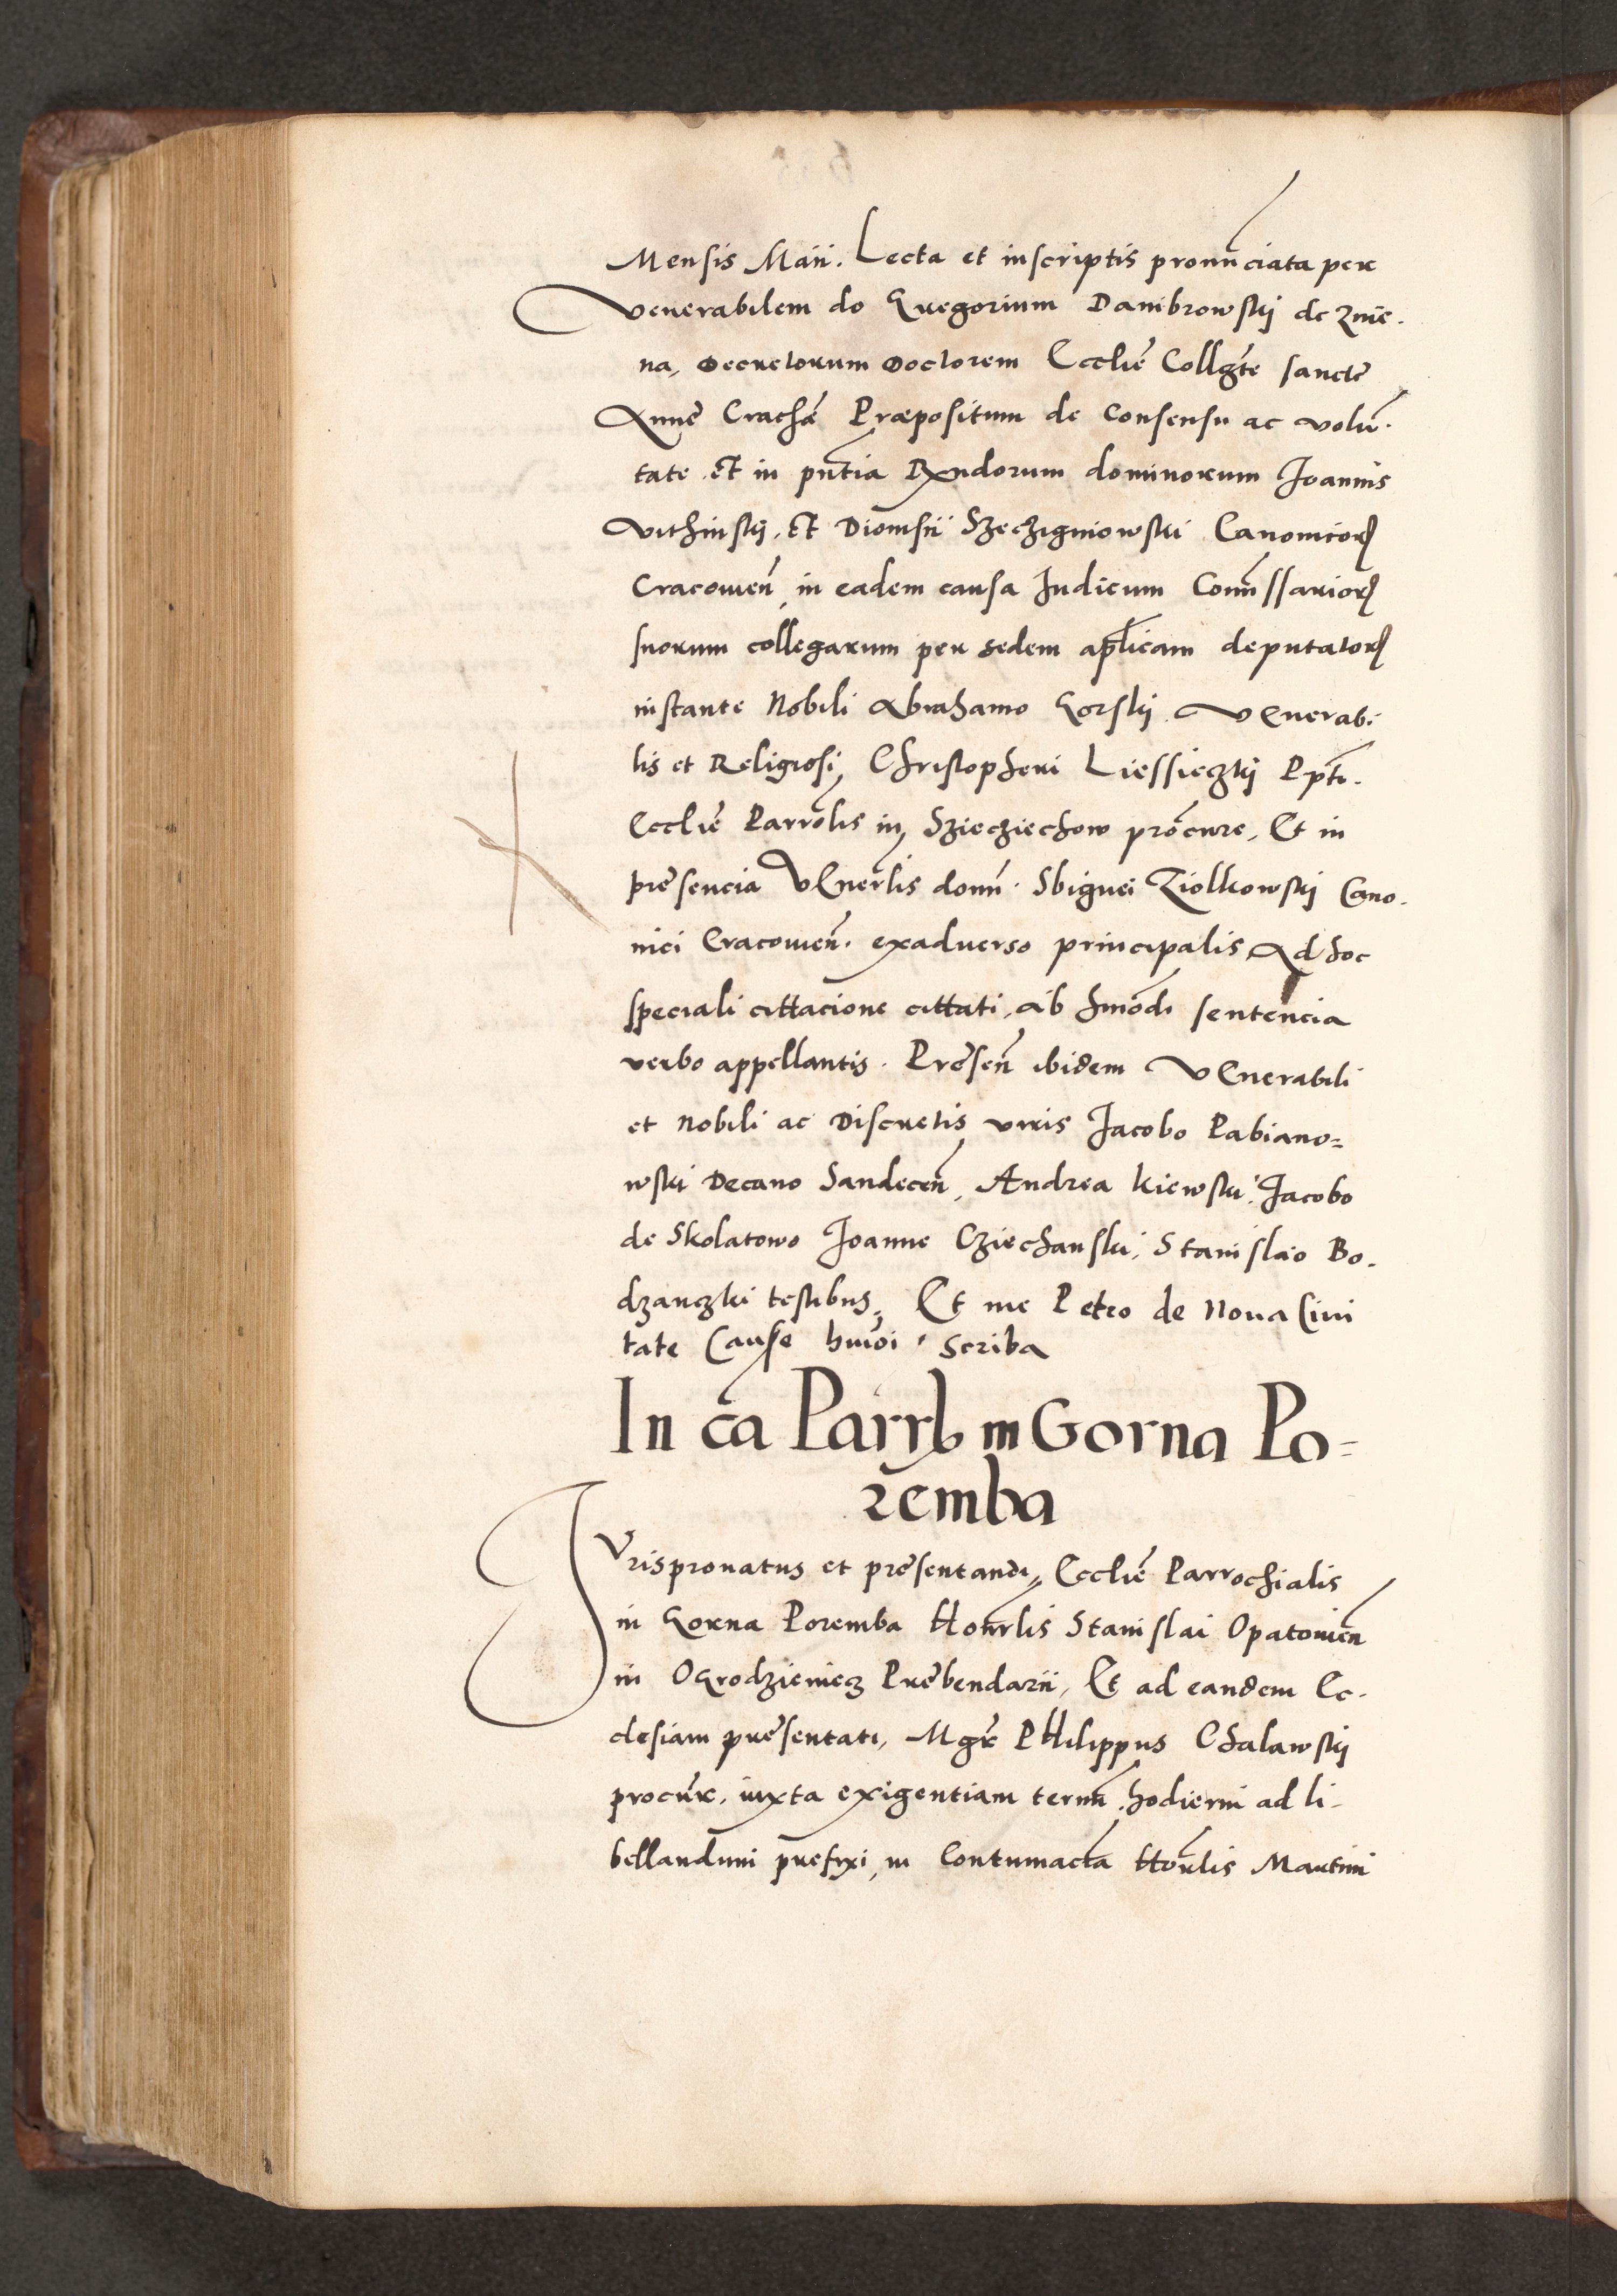 Mensis Maii. Lecta et inscriptis pronūnciata per
venerabilem do Gregorium Dambrowskij de Znie-
na, Decretorum Doctorem Ecclie͂ Collgte͂ sancte
Anne Crachā Præpositum de Consensu ac volū-
tate et in pn̄tia Rx̄ndorum dominorum Joannis
Vithinskij, et Dionisii Szeczigniowski Canonicorꝝ
Cracouien̄, in eadem causa Iudicum Comīssariorꝝ
suorum collegarum per sedem aplīcam deputatorꝝ
instante Nobili Abrahamo Gorskij Venerabi
lis et Religiosi Christopheri Liessieczkij Ppti.
Ecclie͂ Parrōlis in Sziecziechow procure, Et in
presencia Venerlis domn̄. Sbignei Ziolkowskij Cano-
nici Cracouien̄. exaduerso principalis Ad hoc
speciali cittacione cittati, ab hmōdi sentencia
verbo appellantis. Presen̄ ibidem Venerabili
et Nobili ac Discretis viris Jacobo Pabiano=
wski Decano Sandecen̄, Andrea Kiewski, Jacobo
de Skolatowo Joanne Cziechanski, Stanislao Bo-
dzanczki testibus, Et me Petro de Noua Ciui
tate Cause humōi Scriba
In cā Parrlis in Gorna Po=
remba
Jurispronatus et presentandi, Ecclie͂ Parrochialis
in Gorna Poremba Honrlis Stanislai Opatouien̄
in Ogrodzieniecz Prebendarii, Et ad eandem Ec-
clesiam presentati, Mgr̄ Philippus Chalawskij
procur̄, iuxta exigentiam termn̄ hodierni ad li-
bellandum prefixi, in Contumacia Honrlis Martini